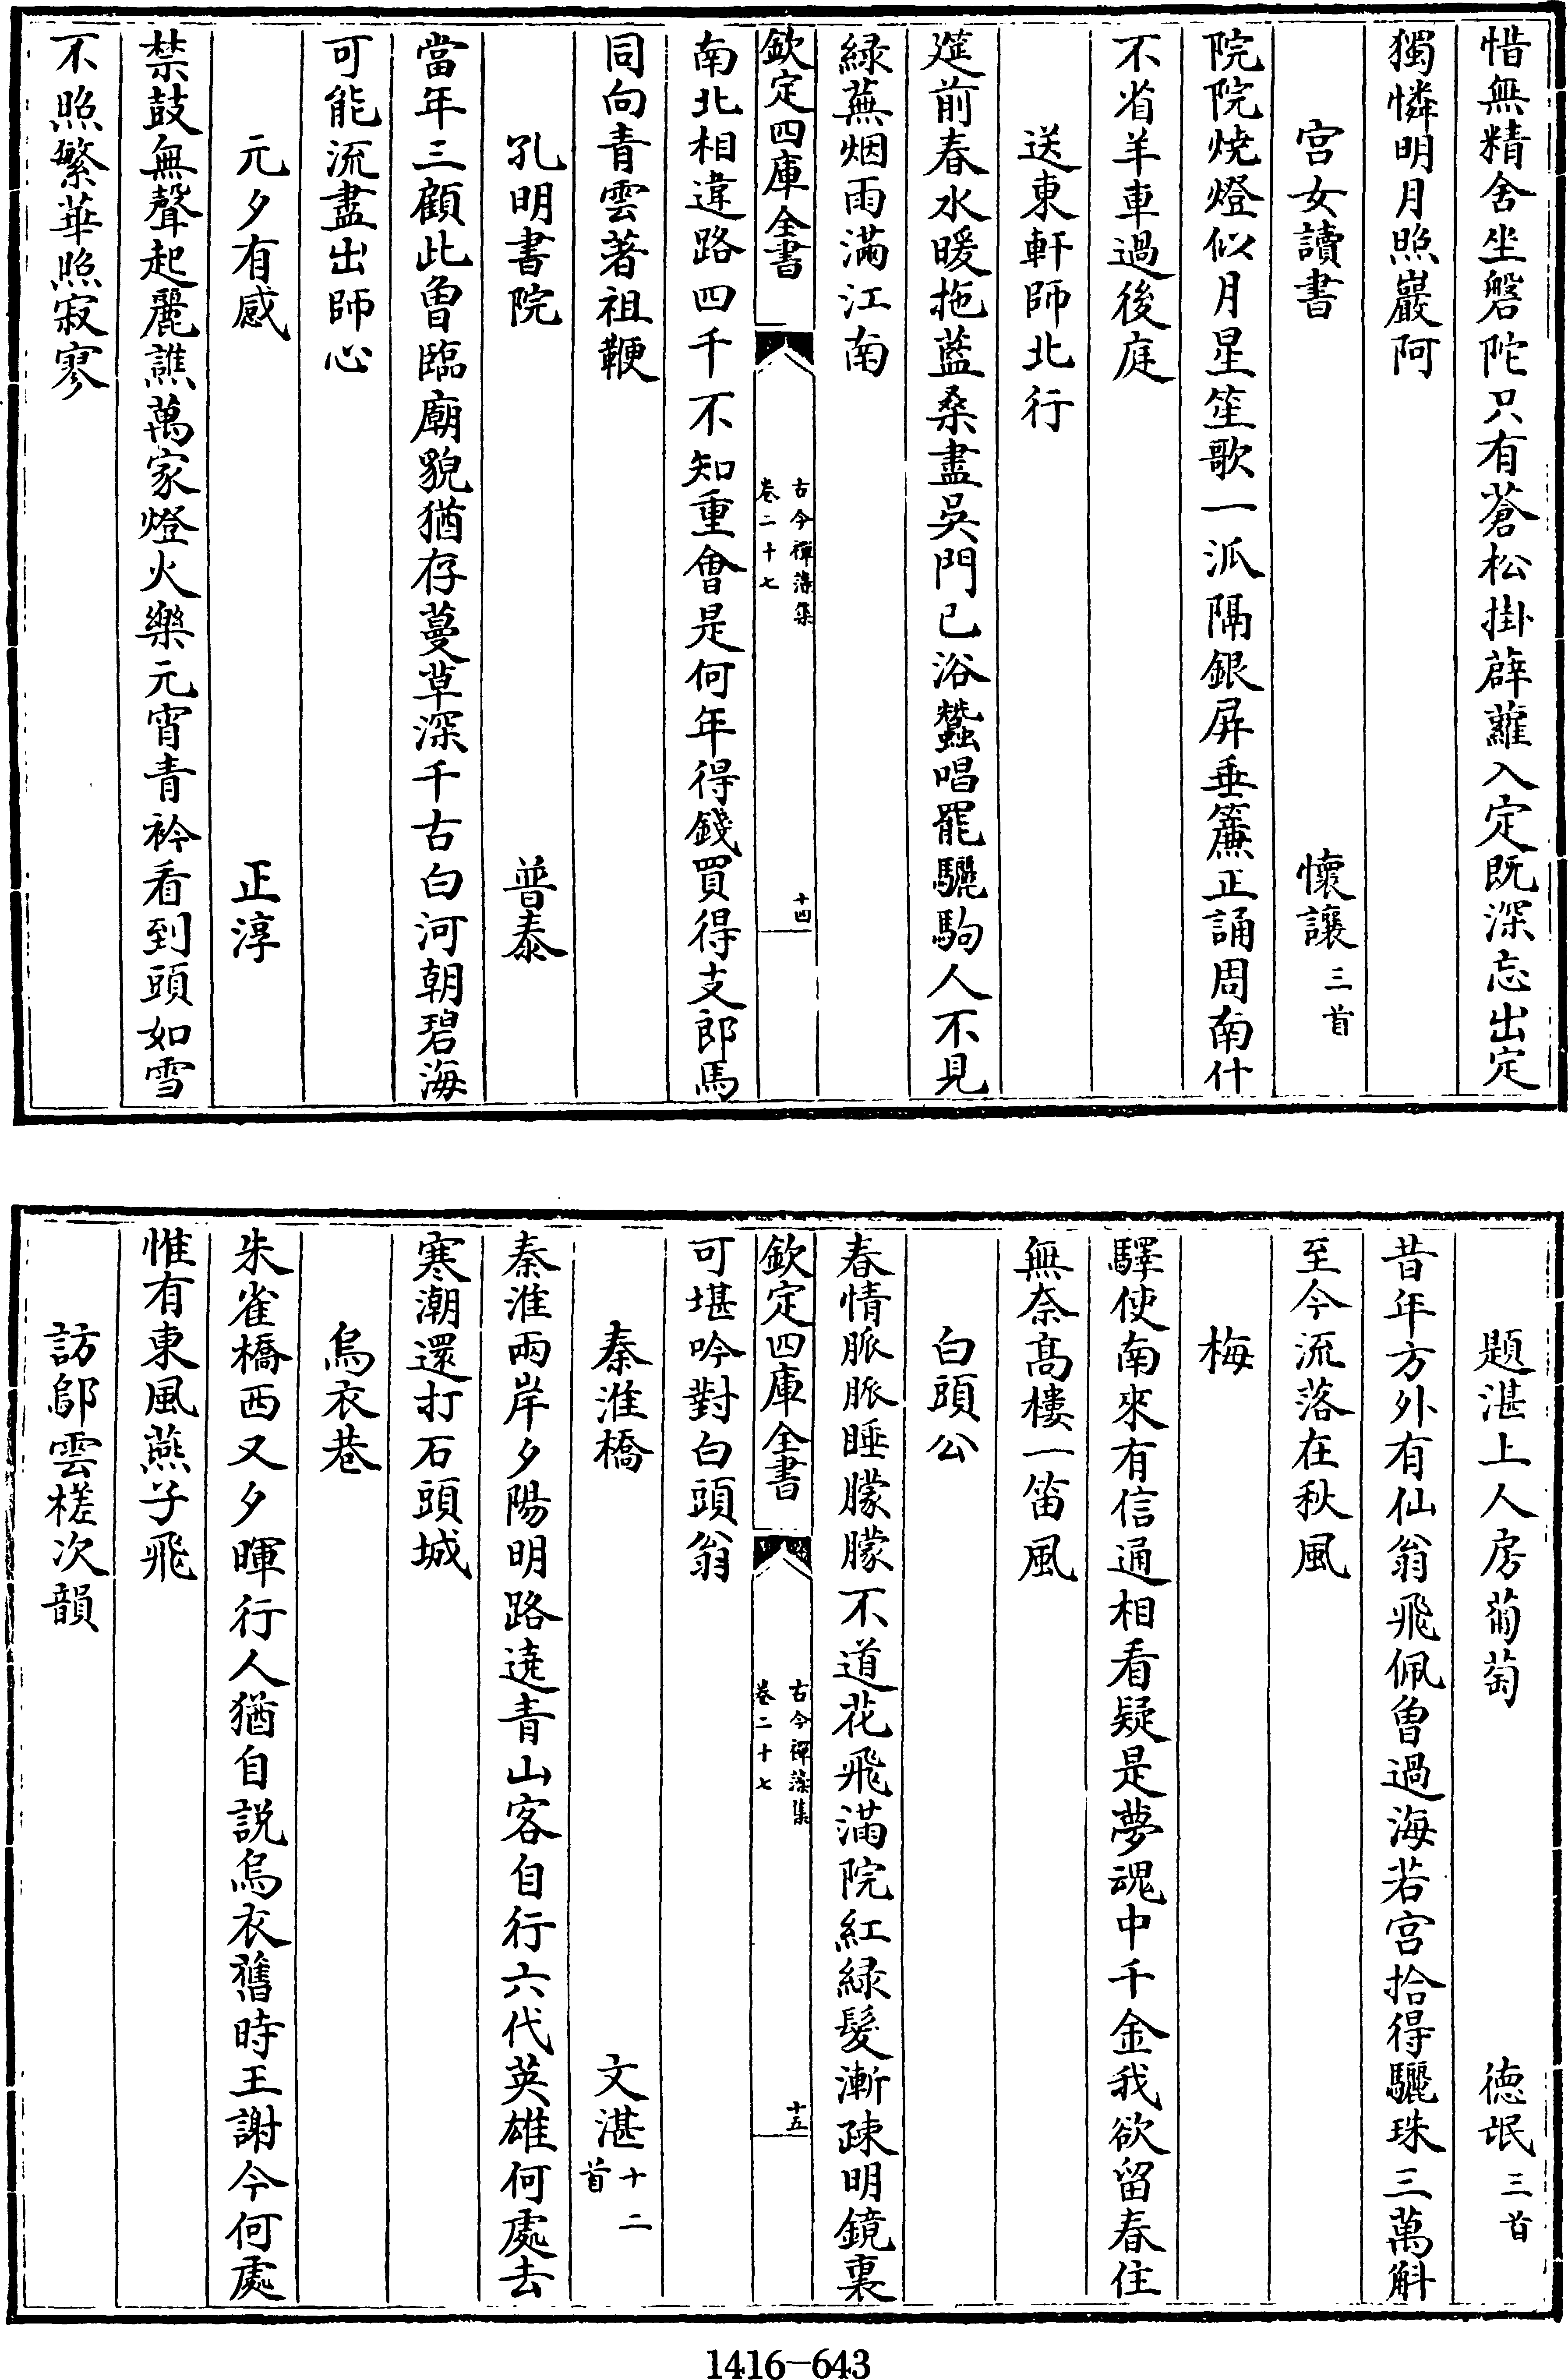 惜無精舍坐磐陀只有蒼松掛薜蘿入定既深忘出定
獨憐明月照巖阿
宮女讀書 懷讓三首
院院燒燈似月星笙歌一派隔銀屏垂簾正誦周南什
不省羊車過後庭
送東軒師北行
筵前春水暖拖藍桑盡吳門已浴蠶唱罷驪駒人不見
綠蕪烟雨滿江南
欽定四庫全書 古今禪藻集 卷二十七 十四
南北相違路四千不知重會是何年得錢買得支郎馬
同向青雲著祖鞭
孔明書院 普泰
當年三顧此曾臨廟貌猶存蔓草深千古白河朝碧海
可能流盡出師心
元夕有感 正淳
禁鼓無聲起麗譙萬家燈火樂元宵青衿看到頭如雪
不照繁華照寂寥
題湛上人房葡萄 德垊三首
昔年方外有仙翁飛佩曾過海若宮拾得驪珠三萬斛
至今流落在秋風
梅
驛使南來有信通相看疑是夢魂中千金我欲留春住
無奈高樓一笛風
白頭公
春情脈脈睡朦朦不道花飛滿院紅綠髮漸疎明鏡裏
欽定四庫全書 古今禪藻集 卷二十七 十五
可堪吟對白頭翁
秦淮橋 文湛十二首
秦淮兩岸夕陽明路遶青山客自行六代英雄何處去
寒潮還打石頭城
烏衣巷
朱雀橋西又夕暉行人猶自説烏衣舊時王謝今何處
惟有東風燕子飛
訪鄔雲槎次韻
1416-643